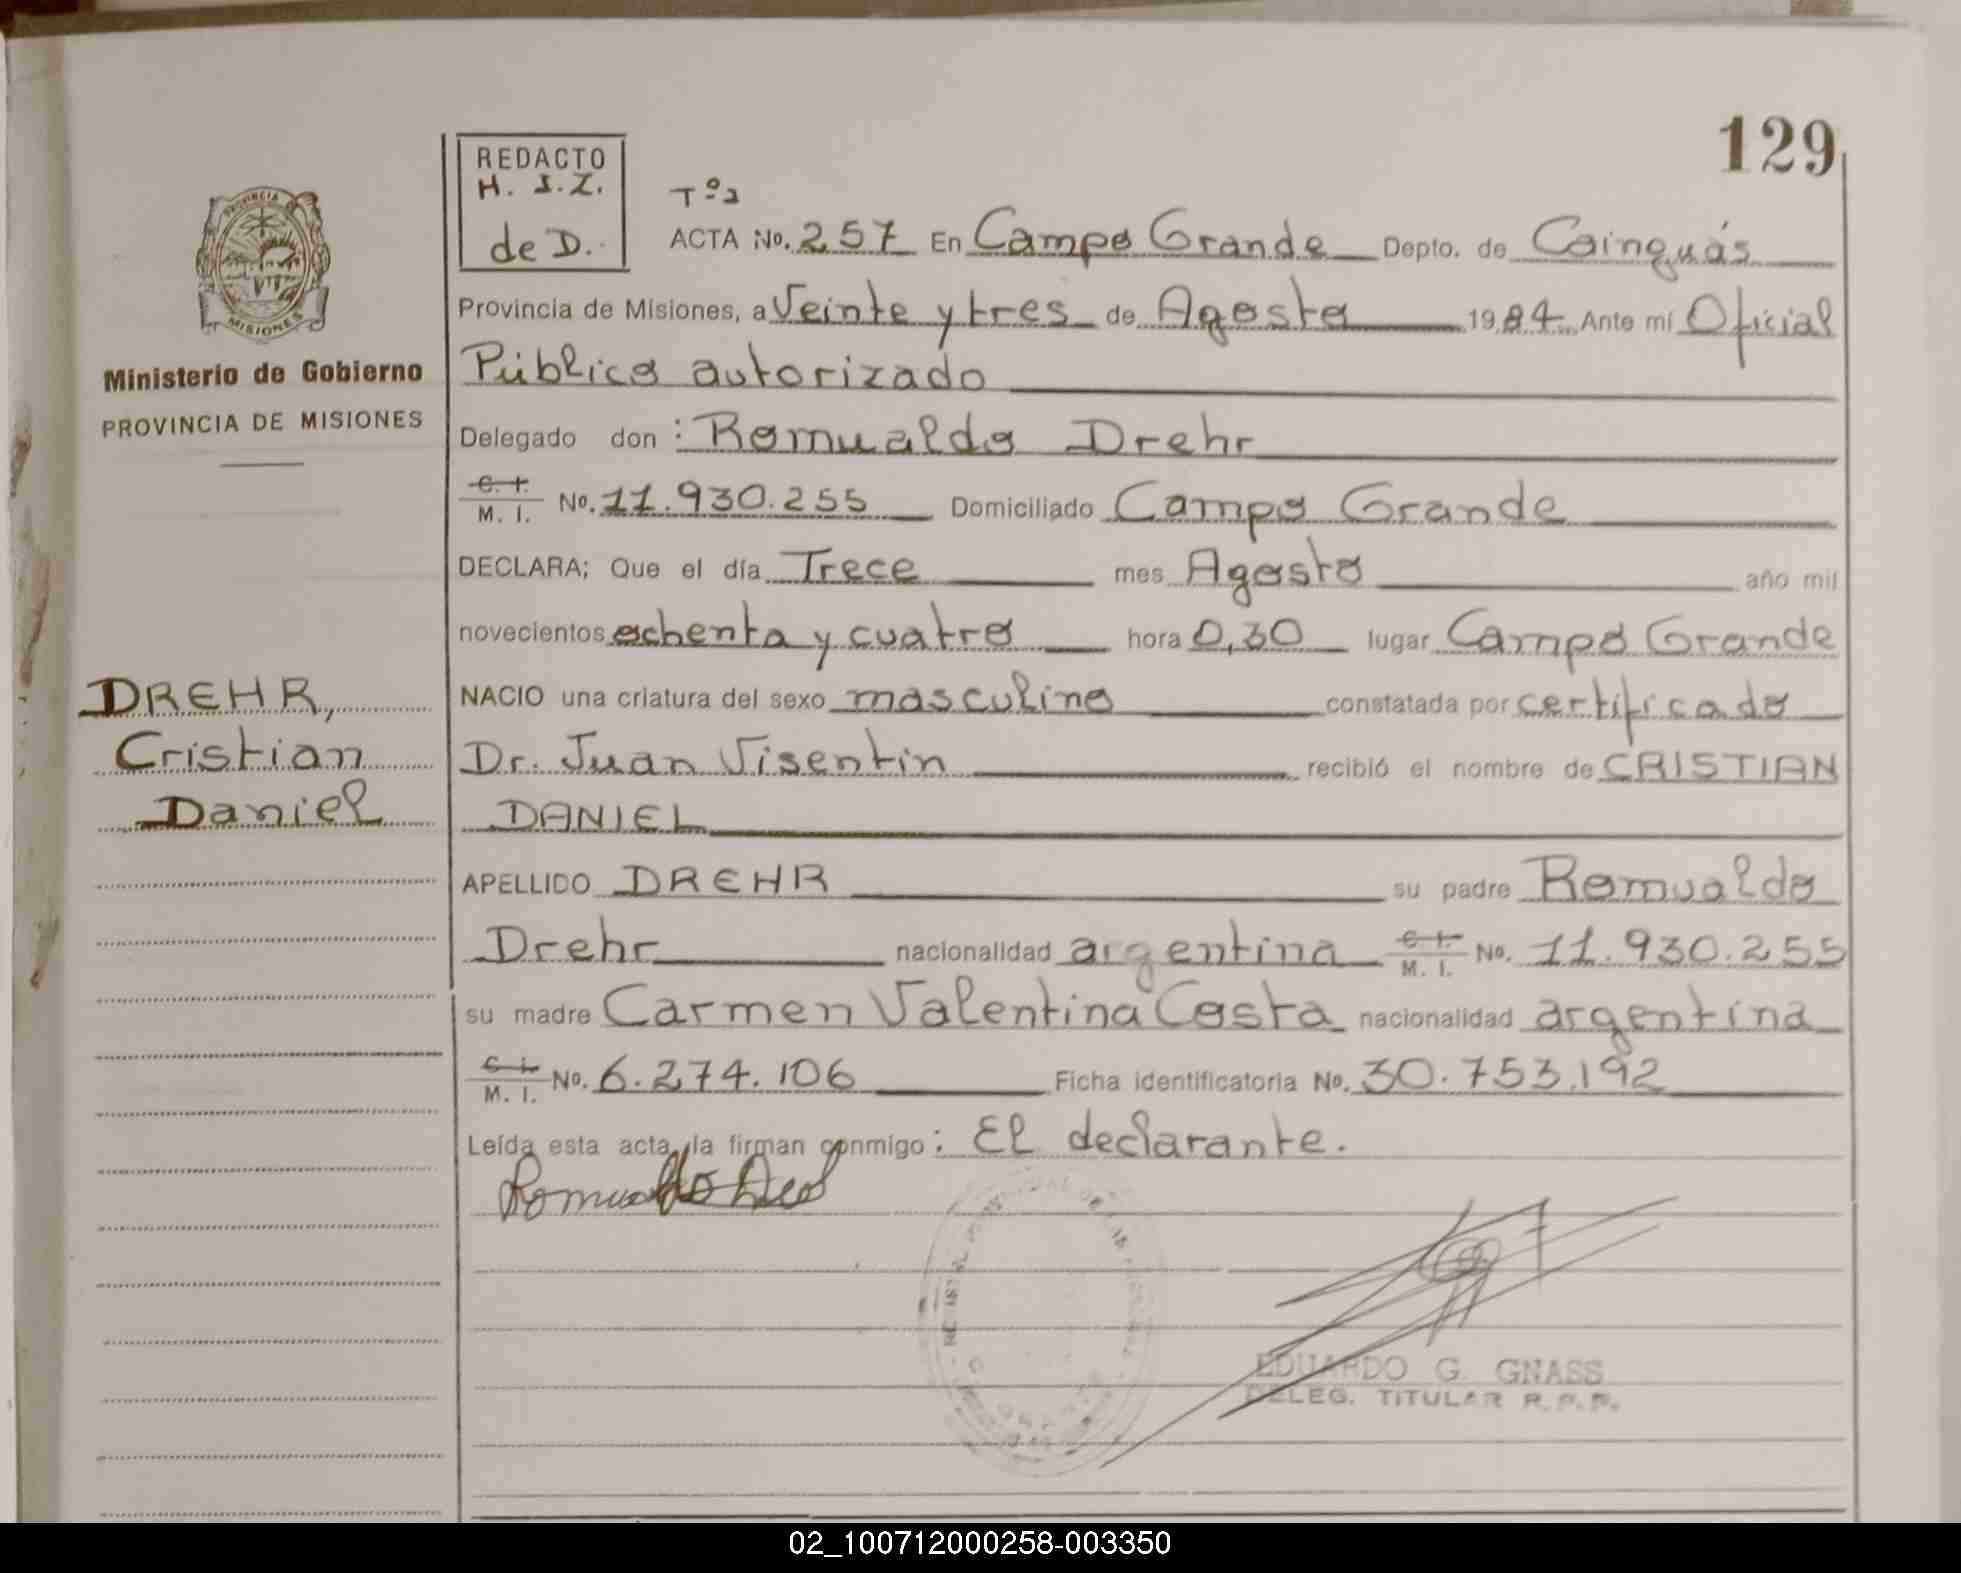 129
PROVINCIA DE
MISIONES
Ministerio de Gobierno
PROVINCIA DE MISIONES
REDACTO
H. I. Z.
de D.
Tº 2
ACTA No. 257 En Campo Grande Depto. de Cainguás
Provincia de Misiones, a Veinte y tres de Agosto 1984 Ante mí Oficial
Público autorizado
Delegado don: Romualdo Drehr
C. I. M. I. No. 11.930.255 Domiciliado Campo Grande
DECLARA; Que el día Trece mes Agosto año mil
novecientos ochenta y cuatro hora 0,30 lugar Campo Grande
NACIO una criatura del sexo masculino constatada por certificado
Dr. Juan Visentin recibió el nombre de CRISTIAN
DANIEL
APELLIDO DREHR su padre Romualdo
Drehr nacionalidad argentina C. I. M. I. No. 11.930.255
su madre Carmen Valentina Costa nacionalidad argentina
C. I. M. I. No. 6.274.106 Ficha identificatoria No. 30.753.192
Leída esta acta, la firman conmigo: El declarante.
Romualdo
DREHR,
Cristian
Daniel
EDUARDO G. GNASS
DELEG. TITULAR R.P.P.
02_100712000258-003350